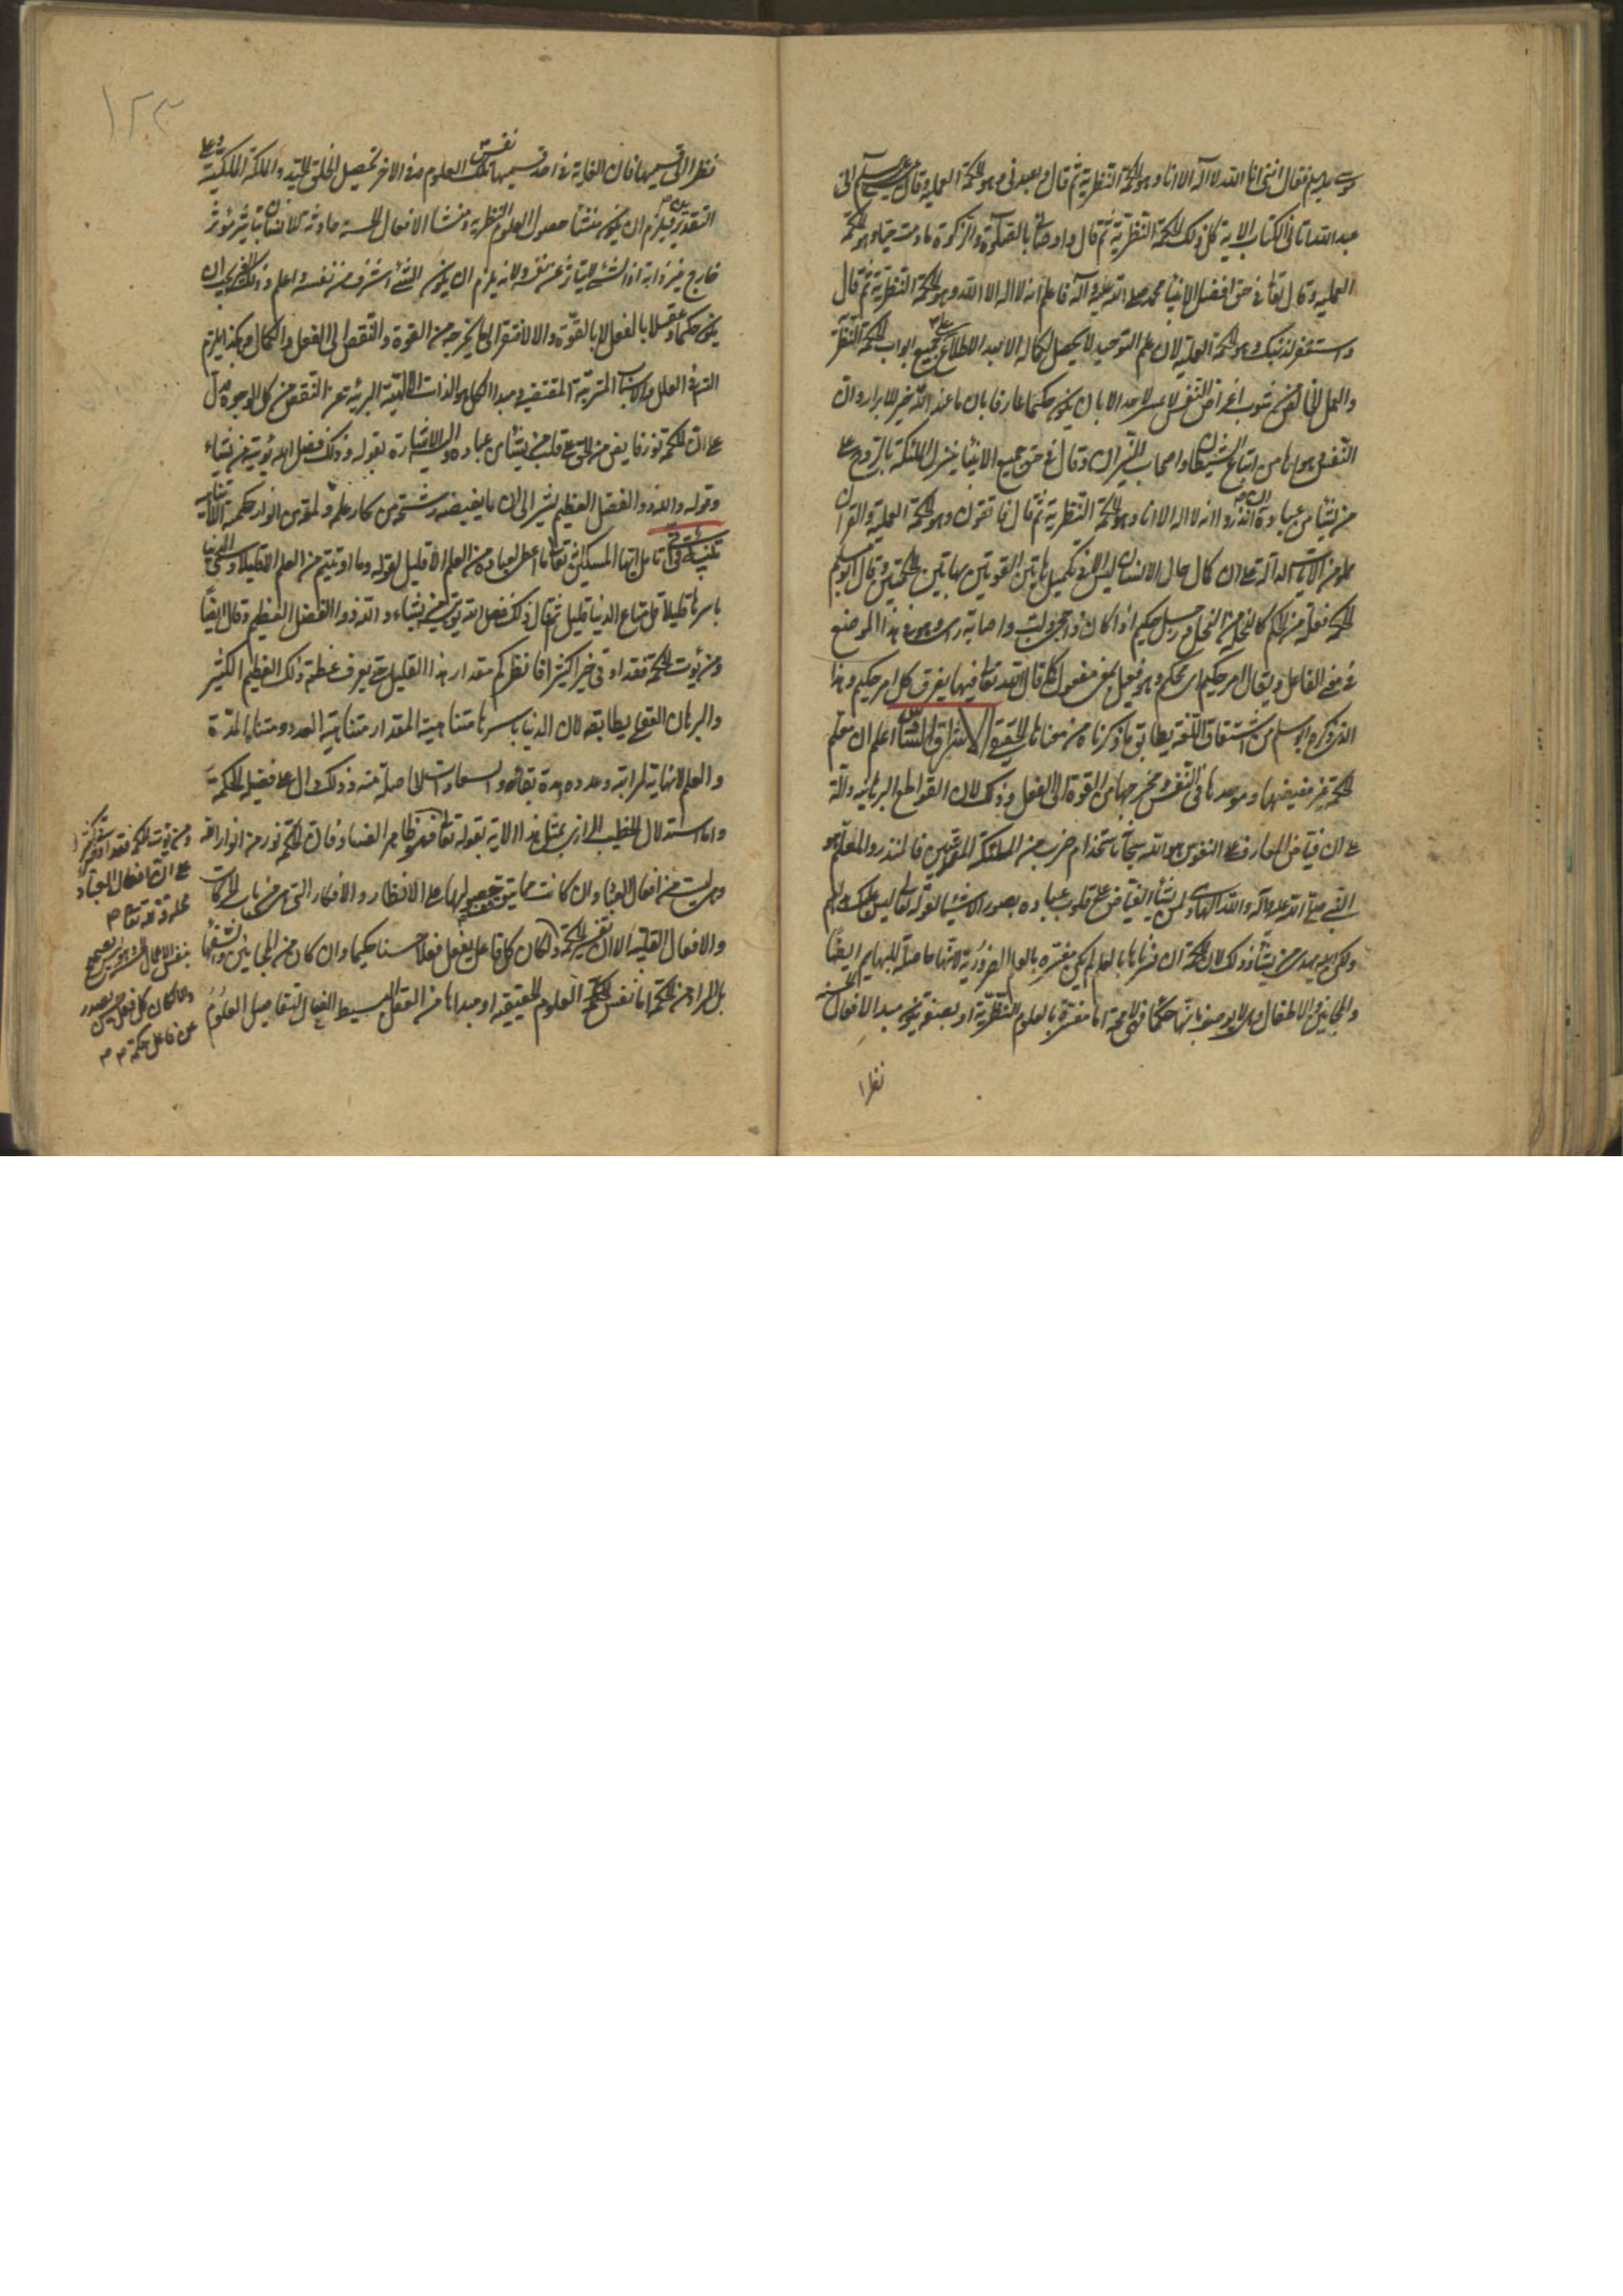 فقال انني انا الله لا اله الا انا وهو الحكمة النظرية ثم قال فاعبدني وهو الحكمة العملية وقال عيسى اني
عبد الله اتاني الكتاب الاية كل ذلك الحكمة النظرية ثم قال واوصاني بالصلوة والزكوة ما دمت حيا وهو الحكمة
العملية وقال تعالى في حق افضل الانبياء محمد صلى الله عليه وآله فاعلم انه لا اله الا الله وهو الحكمة النظرية ثم قال
واستغفر لذنبك وهو الحكمة العملية لان علم التوحيد لا يحصل كماله الا بعد الاطلاع على جميع ابواب الحكمة النظرية
والعمل الخالص عن شوب اغراض النفس لا يتيسر لاحد الا بان يكون حكيما عارفا بان ما عند الله خير للابرار وان
النفس وهواها من اتباع الشيطان واصحاب النيران وقال في حق جميع الانبياء ينزل الملئكة بالروح على
من يشاء من عباده ان انذروا انه لا اله الا انا وهو الحكمة النظرية ثم قال فاتقون وهو الحكمة العملية والقران
مملو من الايات الدالة على ان كمال حال الانسان ليس الا في تكميل هاتين القوتين بهاتين الحكمتين وقال ابو مسلم
الحكمة فعلة من الحكم كالنحلة من النحل ورجل حكيم اذا كان ذا حجى ولب واصابة راى وهو في هذا الموضع
في معنى الفاعل ويقال امر حكيم اى محكم وهو فعيل بمعنى مفعول كما قال الله تعالى فيها يفرق كل امر حكيم وهذا
الذي ذكره ابو مسلم من اشتقاق اللغة يطابق ما ذكرناه من معناها الحقيقي الاشراق السادس اعلم ان معلم
الحكمة غير مفيضها وموجدها في النفس ومخرجها من القوة الى الفعل وذلك لان القواطع البرهانية دالة
على ان فياض المعارف على النفوس هو الله سبحانه باستخدام ضرب من الملئكة المقربين فالمنذر والمعلم هو
النبي صلى الله عليه وآله والله الهادى لمن يشاء الفياض على قلوب عباده بصور الاشياء لقوله تعالى ليس عليك هديهم
ولكن الله يهدى من يشاء وذلك لان الحكمة ان فسرناها بالعلم لم يكن مفسرة بالعلوم الضرورية لانها حاصلة للبهايم ايضا
والمجانين والاطفال وهؤلاء لا يوصفون بانهم حكماء فهى لا محالة اما مفسرة بالعلوم النظرية او بصفة يكون مبدا الافعال الحسنة
نظرا
١٢٣
نظرا الى قسيمها فان الغاية في احد قسيمها نفس تلك العلوم وفي الاخر تحصيل الخلق الجيد والملكة الملكية وعلى
التقديرين فيلزم ان يكون منشأ حصول العلوم النظرية ومنشأ الافعال الحسنة حادثة للانسان بتاثير مؤثر
خارج عن ذاته اذ الشئ لا يتاثر عن نفسه ولانه يلزم ان يكون الشئ اشرف من نفسه واعلم وذلك المؤثر يجب ان
يكون حكيما وعقلا بالفعل لا بالقوة والا لافتقر الى ما يخرجه من القوة والنقص الى الفعل والكمال وهكذا يلزم
التسلسل في العلل والاسباب المترتبة المقتضية في مبدا الكل هو الذات الالهية البرية عن النقص من كل الوجوه فدل
على ان الحكمة نور فايض من الحق على قلب من يشاء من عباده واليه الاشارة بقوله وذلك فضل الله يؤتيه من يشاء
وقوله والله ذو الفضل العظيم يشير الى ان ما يفيضه رشحة من بحار علمه ولمعة من انوار حكمه الغير المتناهية
تنبيه تامل ايها المسكين ان الله تعالى ما اعطى لعباده من العلم الا قليل لقوله وما اوتيتم من العلم الا قليلا وسمى الدنيا
باسرها قليلا قل متاع الدنيا قليل ثم قال ذلك فضل الله يؤتيه من يشاء والله ذو الفضل العظيم وقال ايضا
ومن يؤت الحكمة فقد اوتى خيرا كثيرا فانظر كم مقدار هذا القليل حتى يعرف عظمة ذلك العظيم الكثير
والبرهان العقلى يطابقه لان الدنيا باسرها متناهية المقدار متناهية العدد ومتناهية المدة
والعلم لا نهاية لمراتبه وعدده ومدة بقائه والسعادات الحاصلة منه وذلك دال على فضيلة الحكمة
واما استدلال الخطيب الرازى بمثل هذا الاية بقوله تعالى فهو ظاهر الفساد فان الحكمة نور من انوار الله
وليست من افعال العباد وان كانت مما يتوقف حصولها على الانظار والافكار التى هى من باب الحركات
والافعال القلبية الا ان نفس الحكمة والا لكان كل فاعل يفعل فعلا حسنا حكيما وان كان من المجانين والسفهاء
بل المراد من الحكمة اما نفس العلوم الحقيقية او مبداها من العقل البسيط الفعال لتفاصيل العلوم
ومن يؤت الحكمة فقد اوتى خيرا كثيرا
على ان افعال العباد
مخلوقة لله تعالى
بنفس الاعمال
والا لكان كل فعل حسن يصدر
عن فاعل حكمة